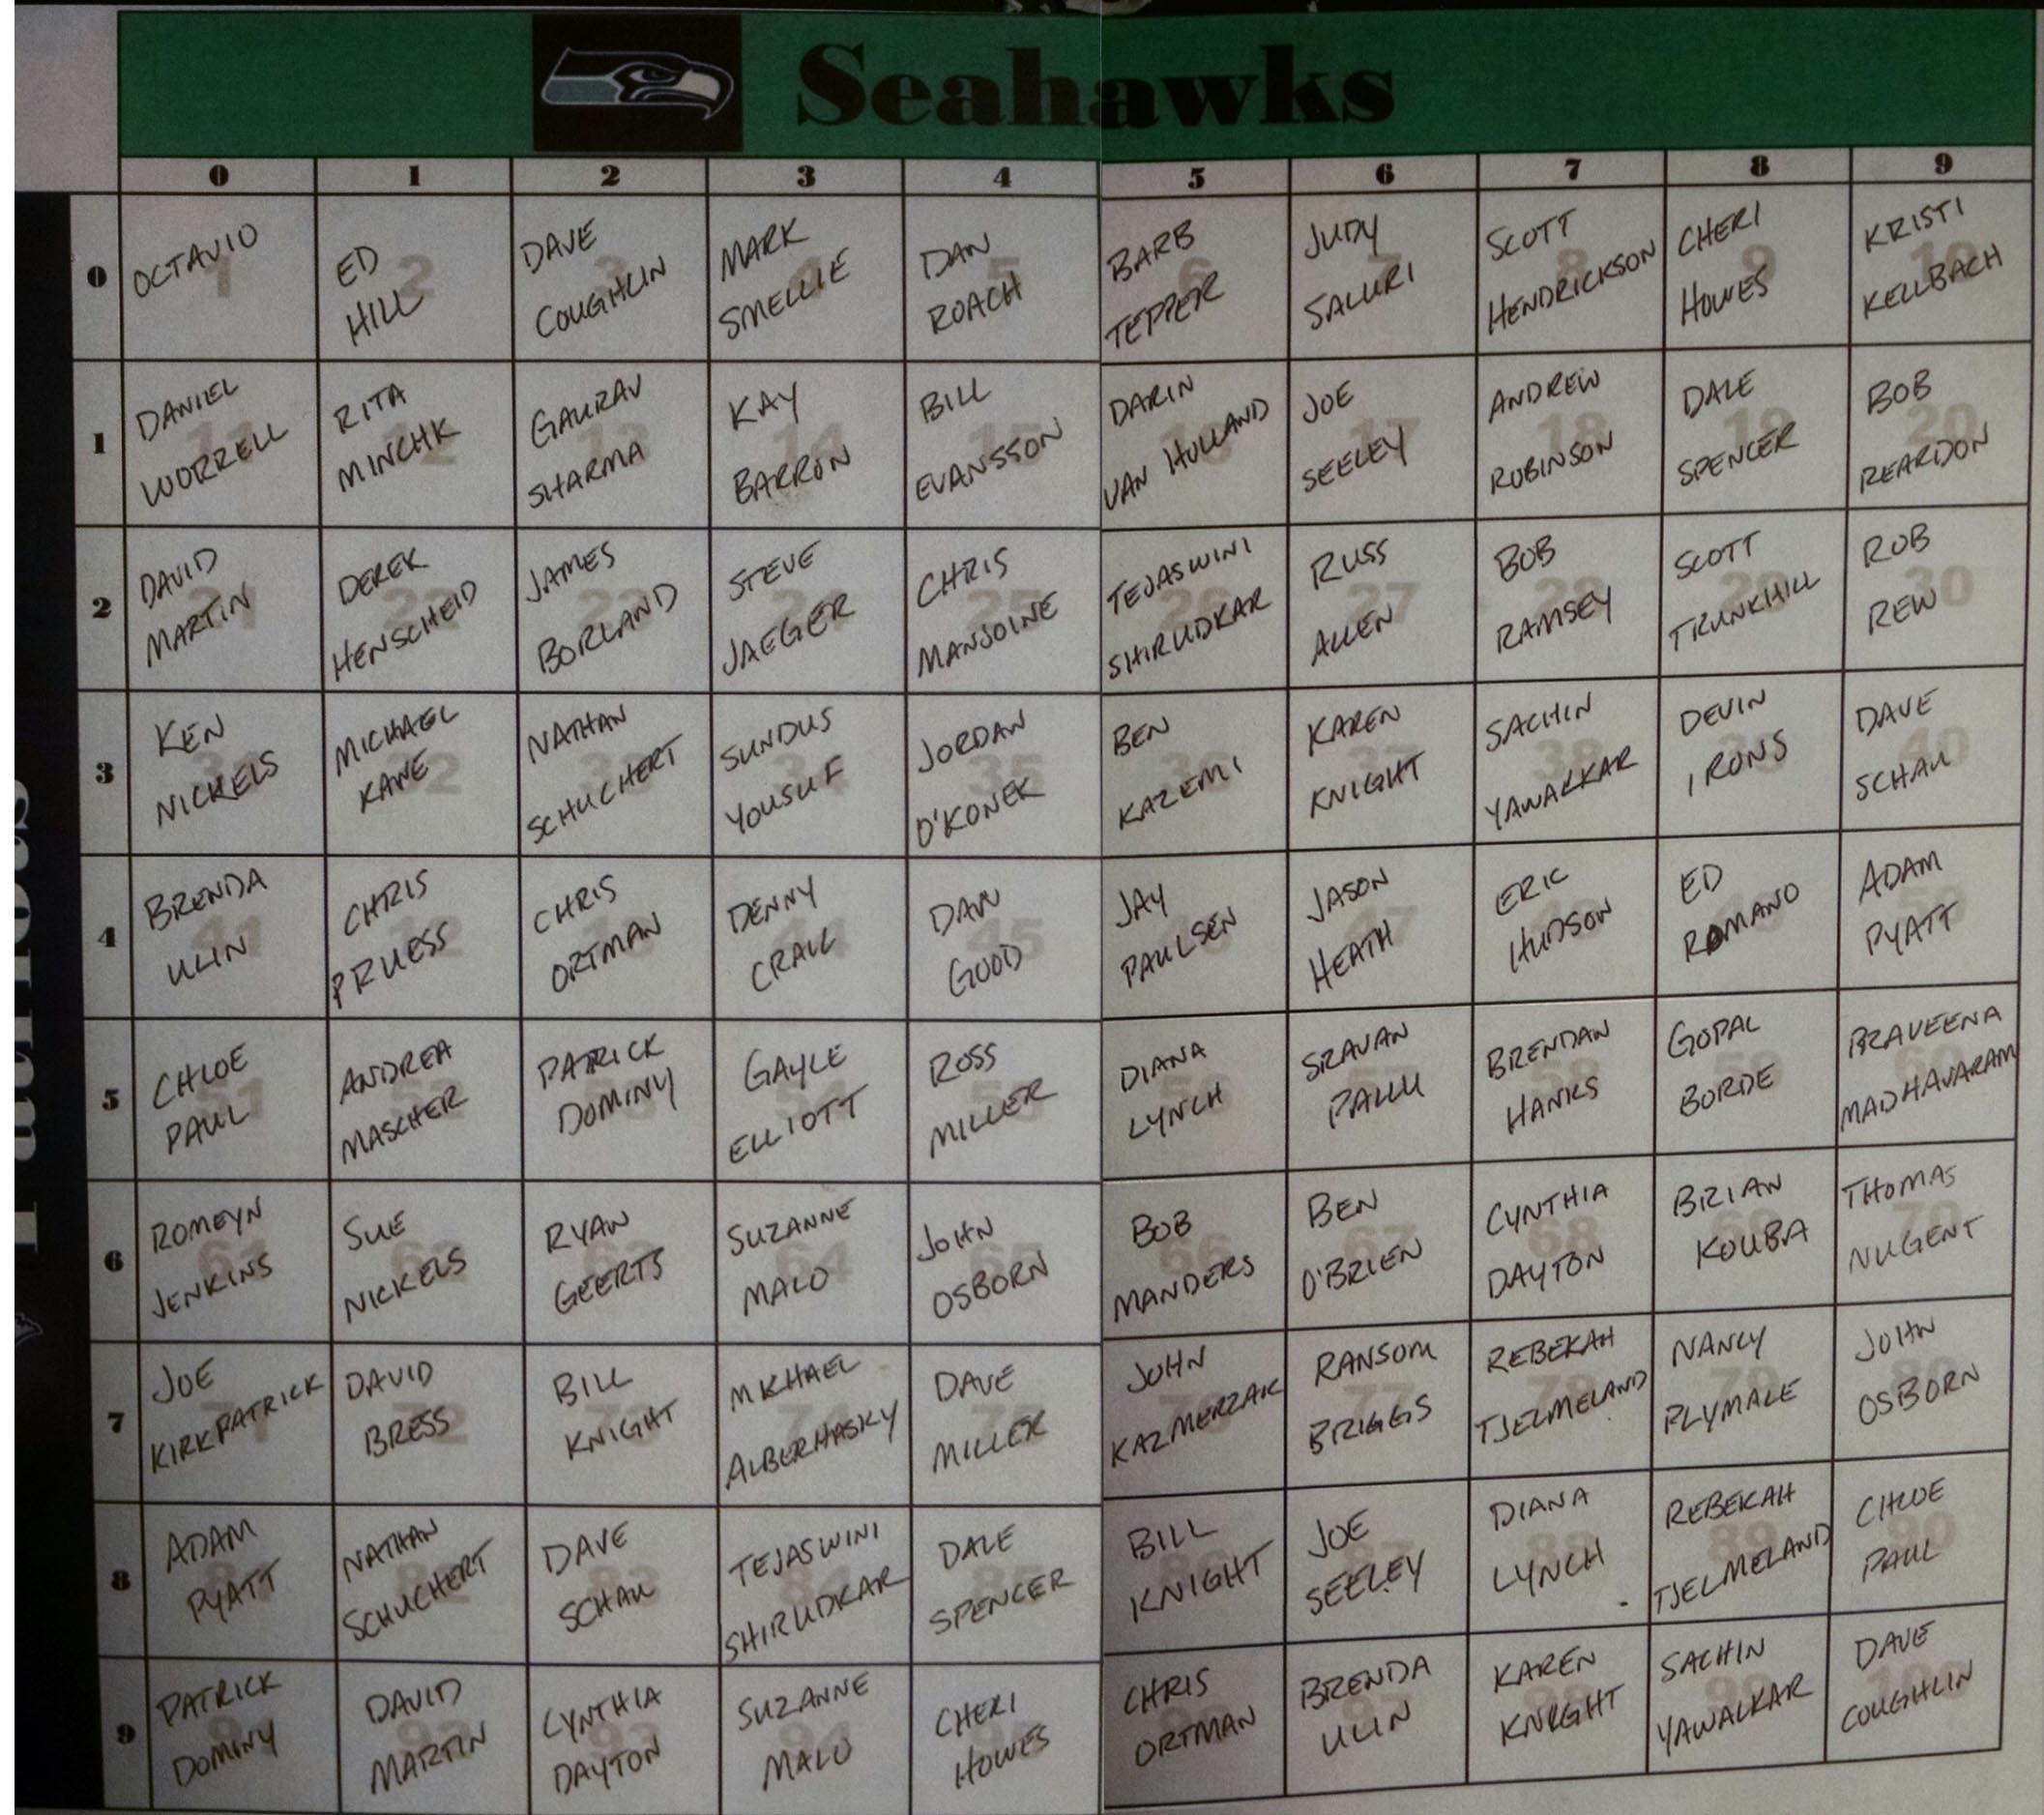 Seahawks
0 1 2 3 4 5 6 7 8 9
0
OCTAVIO
ED
HILL
DAVE
COUGHLIN
MARK
SMELLIE
DAN
ROACH
BARB
TEPPER
JUDY
SALURI
SCOTT
HENDRICKSON
CHERI
HOWES
KRISTI
KELLBACH
1
DANIEL
WORRELL
RITA
MINCHK
GAURAV
SHARMA
KAY
BARRON
BILL
EVANSSON
DARIN
VAN HOLLAND
JOE
SEELEY
ANDREW
ROBINSON
DALE
SPENCER
BOB
REARDON
2
DAVID
MARTIN
DEREK
HENSCHEID
JAMES
BORLAND
STEVE
JAEGER
CHRIS
MANJOINE
TEJASWINI
SHIRUDKAR
RUSS
ALLEN
BOB
RAMSEY
SCOTT
TRUNKHILL
ROB
REW
3
KEN
NICKELS
MICHAEL
KANE
NATHAN
SCHUCHERT
SUNDUS
YOUSUF
JORDAN
O'KONEK
BEN
KAZEMI
KAREN
KNIGHT
SACHIN
YAWALKAR
DEVIN
IRONS
DAVE
SCHAU
4
BRENDA
ULIN
CHRIS
PRUESS
CHRIS
ORTMAN
DENNY
CRALL
DAN
GOOD
JAY
PAULSEN
JASON
HEATH
ERIC
HUDSON
ED
ROMANO
ADAM
PYATT
5
CHLOE
PAUL
ANDREA
MASCHER
PATRICK
DOMINY
GAYLE
ELLIOTT
ROSS
MILLER
DIANA
LYNCH
SRAVAN
PALLU
BRENDAN
HANKS
GOPAL
BORDE
PRAVEENA
MADHAVARAM
6
ROMEYN
JENKINS
SUE
NICKELS
RYAN
GEERTS
SUZANNE
MALO
JOHN
OSBORN
BOB
MANDERS
BEN
O'BRIEN
CYNTHIA
DAYTON
BRIAN
KOUBA
THOMAS
NUGENT
7
JOE
KIRKPATRICK
DAVID
BRESS
BILL
KNIGHT
MICHAEL
ALBERHASKY
DAVE
MILLER
JOHN
KAZMERZAK
RANSOM
BRIGGS
REBEKAH
TJELMELAND
NANCY
PLYMALE
JOHN
OSBORN
8
ADAM
PYATT
NATHAN
SCHUCHERT
DAVE
SCHAU
TEJASWINI
SHIRUDKAR
DALE
SPENCER
BILL
KNIGHT
JOE
SEELEY
DIANA
LYNCH
REBEKAH
TJELMELAND
CHLOE
PAUL
9
PATRICK
DOMINY
DAVID
MARTIN
CYNTHIA
DAYTON
SUZANNE
MALO
CHERI
HOWES
CHRIS
ORTMAN
BRENDA
ULIN
KAREN
KNIGHT
SACHIN
YAWALKAR
DAVE
COUGHLIN